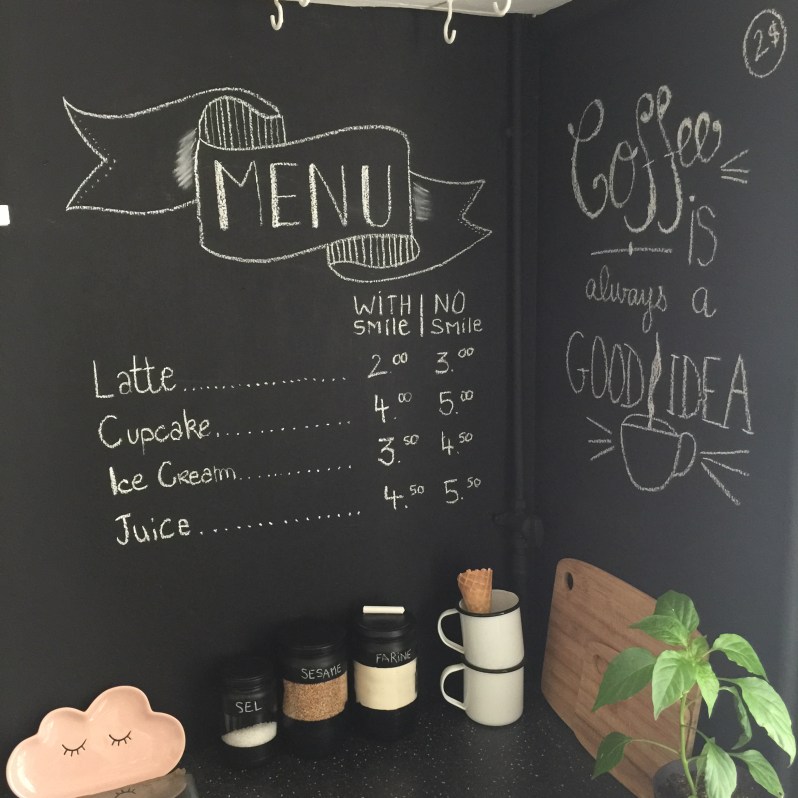 MENU
WITH SMILE | NO SMILE
Latte 2.00 3.00
Cupcake 4.00 5.00
Ice Cream 3.50 4.50
Juice 4.50 5.50
2$
Coffee
is
always a
GOOD IDEA
SEL
SESAME
FARINE